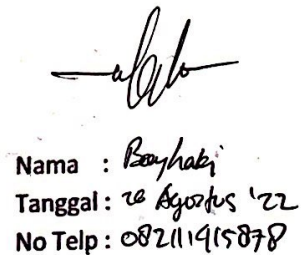 Nama : Bayhaki
Tanggal : 20 Agustus '22
No Telp : 082111915878